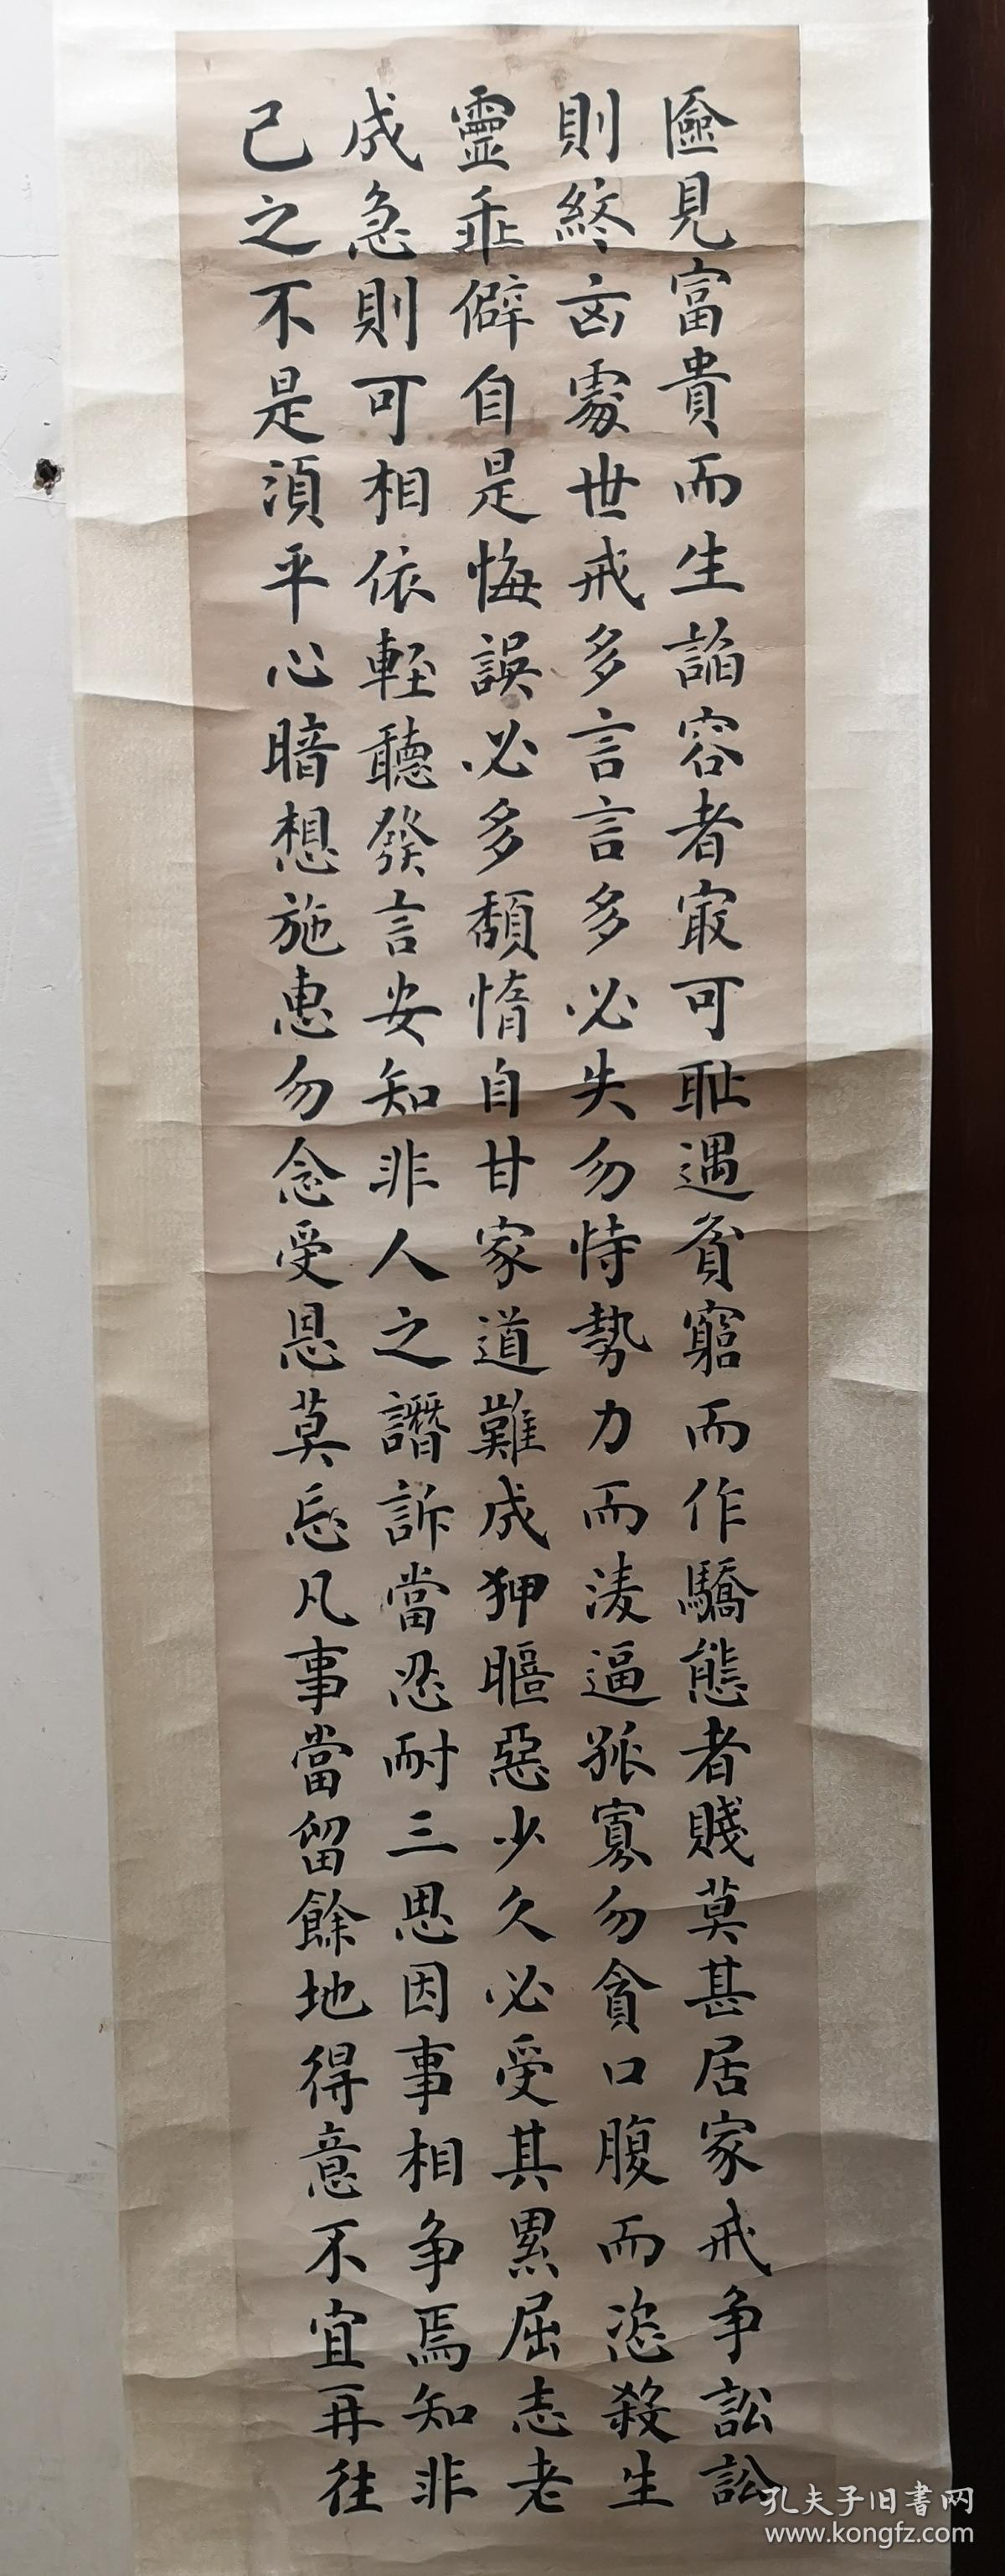 匳見富貴而生諂容者冣可耻遇貧窮而作驕態者賤莫甚居家戒爭訟訟
則終凶處世戒多言言多必失勿恃勢力而淩逼孤寡勿貪口腹而恣殺生
靈乖僻自是悔誤必多頹惰自甘家道難成狎暱惡少久必受其累屈志老
成急則可相依輕聽發言安知非人之譖訴當忍耐三思因事相爭焉知非
己之不是須平心暗想施惠勿念受恩莫忘凡事當留餘地得意不宜再往
孔夫子旧书网
www.kongfz.com